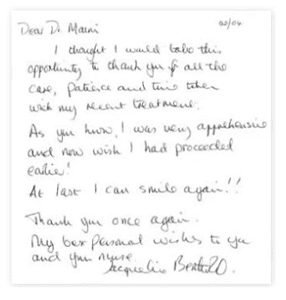 Dear Dr Maini
I thought I would take this
opportunity to thank you for all the
care, patience and time taken
with my recent treatment.
As you know, I was very apprehensive
and now wish I had proceeded
earlier!
At last I can smile again!!
Thank you once again.
My best personal wishes to you
and your nurse.
Jacqueline